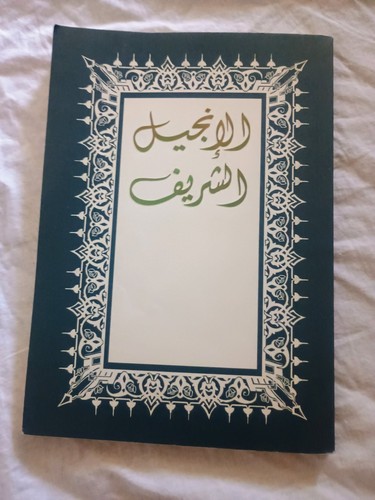 الإنجيل
الشريف